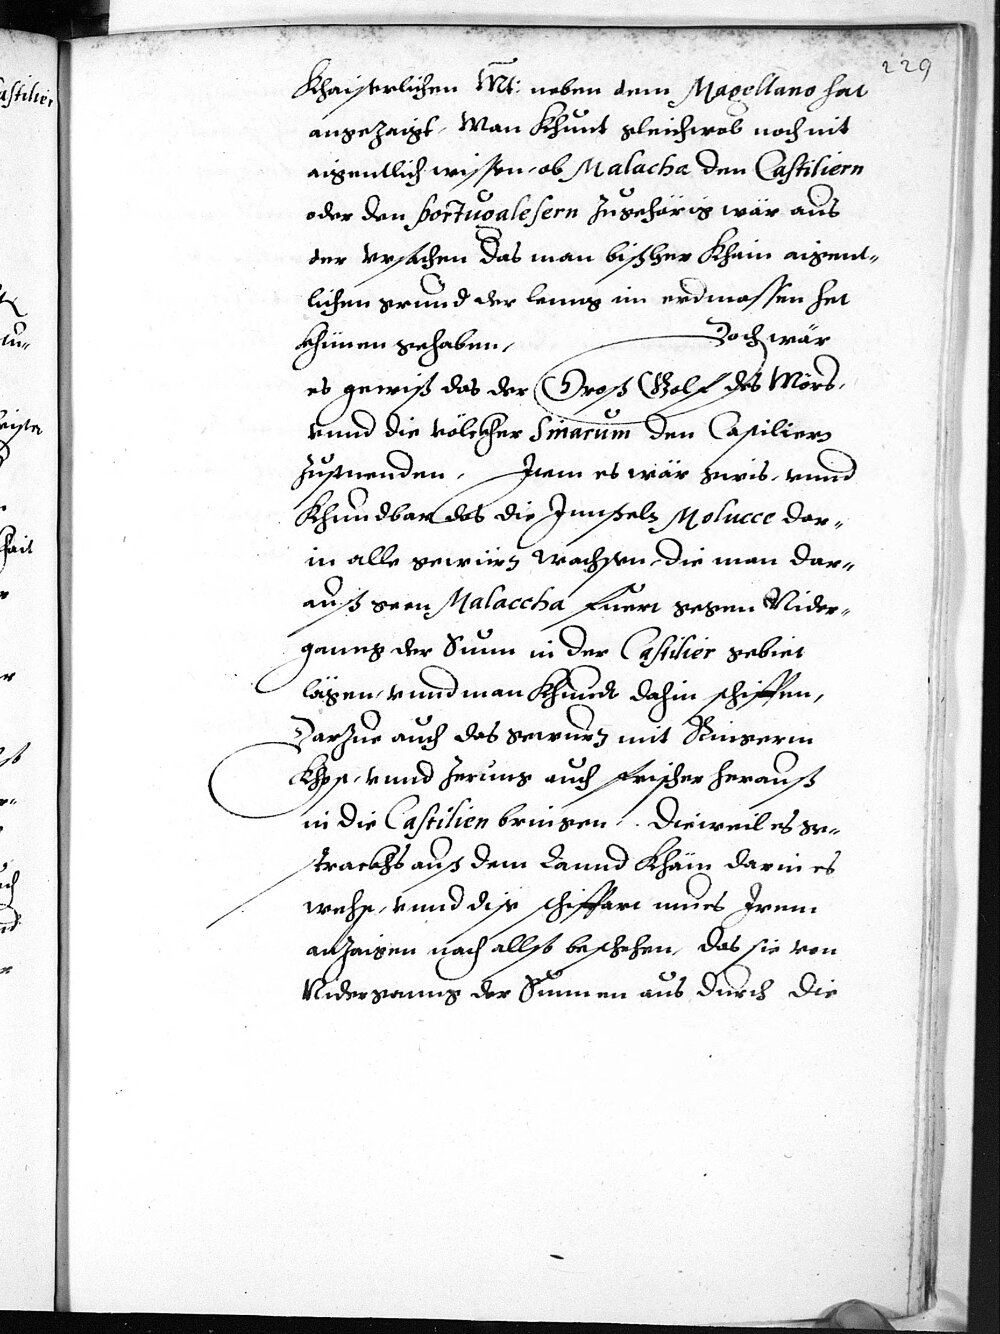 229
Khaiserlichen Mt: neben dem Magellano hat
angezaigt, Man Khunt gleichwol noch nit
aigentlich wissen, ob Malacha den Castiliern
oder den portugalesern Zugehörig wär aus
der vrsachen das man bißher Khain aigent-
lichen grund der leng im erdmassen hat
khünen gehaben, Doch wär
es gewiß das der Groß Golf des Mörs,
vnnd die völckher Sinarum den Castiliern
Zustuenden, Item es wär gwis, vnnd
Khundbar das die Innseln Molucce dar-
in alle gewürz wachsen, die man dar-
auß geen Malaccha fuert gegen Nider-
ganng der Sunn in der Castilier gebiet
lägen, vnnd man Khündt dahin schiffen,
Darzue auch das gewurz mit Ringerm
Khosst, vnnd Zerung auch frischer herauß
in die Castilien bringen. Dieweil es ge-
strackhs auß dem Lannd Khäm darin es
wechst, vnnd dise schiffart mues Irem
anzaigen nach allso beschehen, das sie von
Niderganng der Sunnen aus durch die